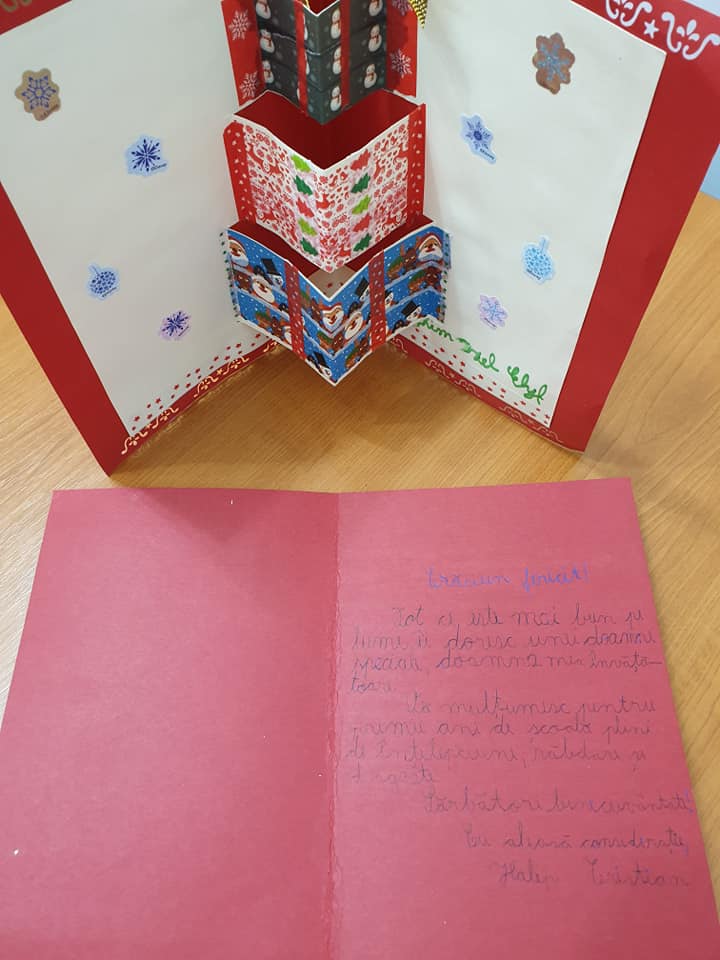 Crăciun fericit!
Tot ce este mai bun pe
lume îi doresc unei doamne
speciale, doamna mea învăță-
toare.
Vă mulțumesc pentru
primii ani de școală plini
de înțelepciune, răbdare și
Sărbători binecuvântate!
Cu aleasă considerație,
Halep Cristian